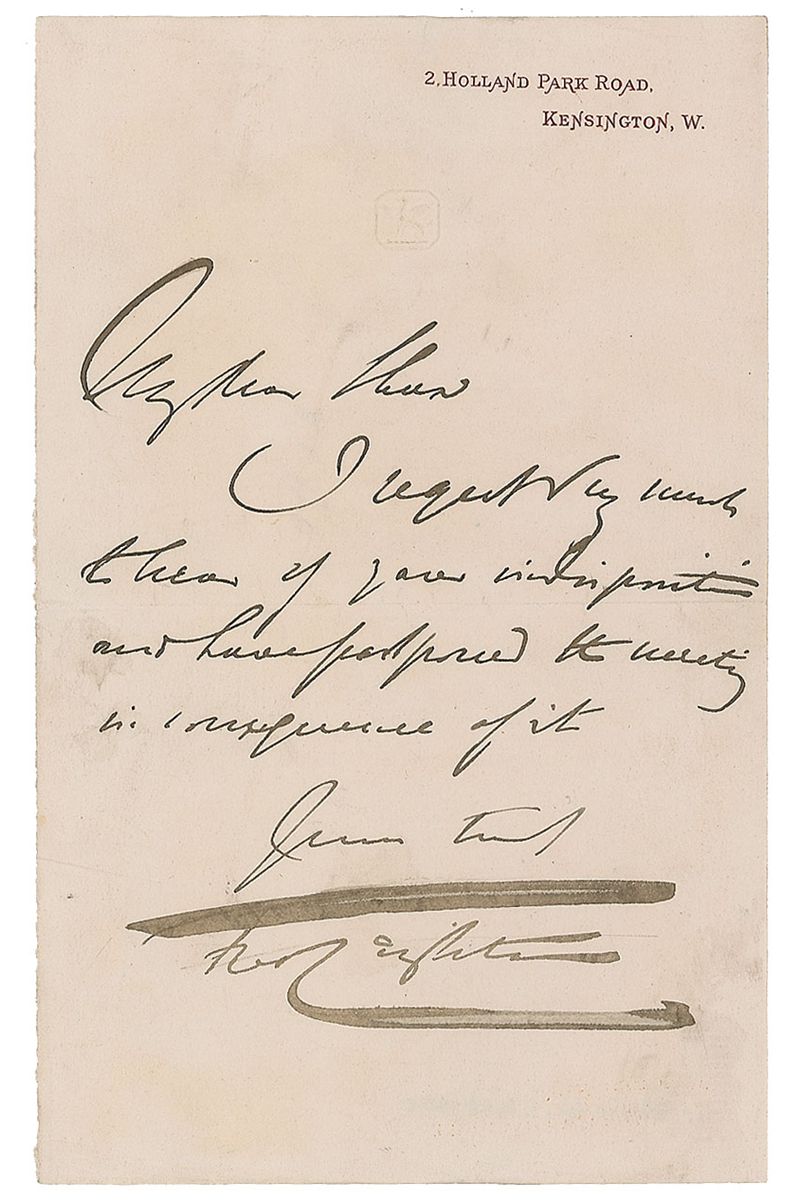 2, HOLLAND PARK ROAD,
KENSINGTON, W.
My dear Shaw
I regret very much
to hear of your indisposition
and have postponed the meeting
in consequence of it
Yours truly
Fred Leighton